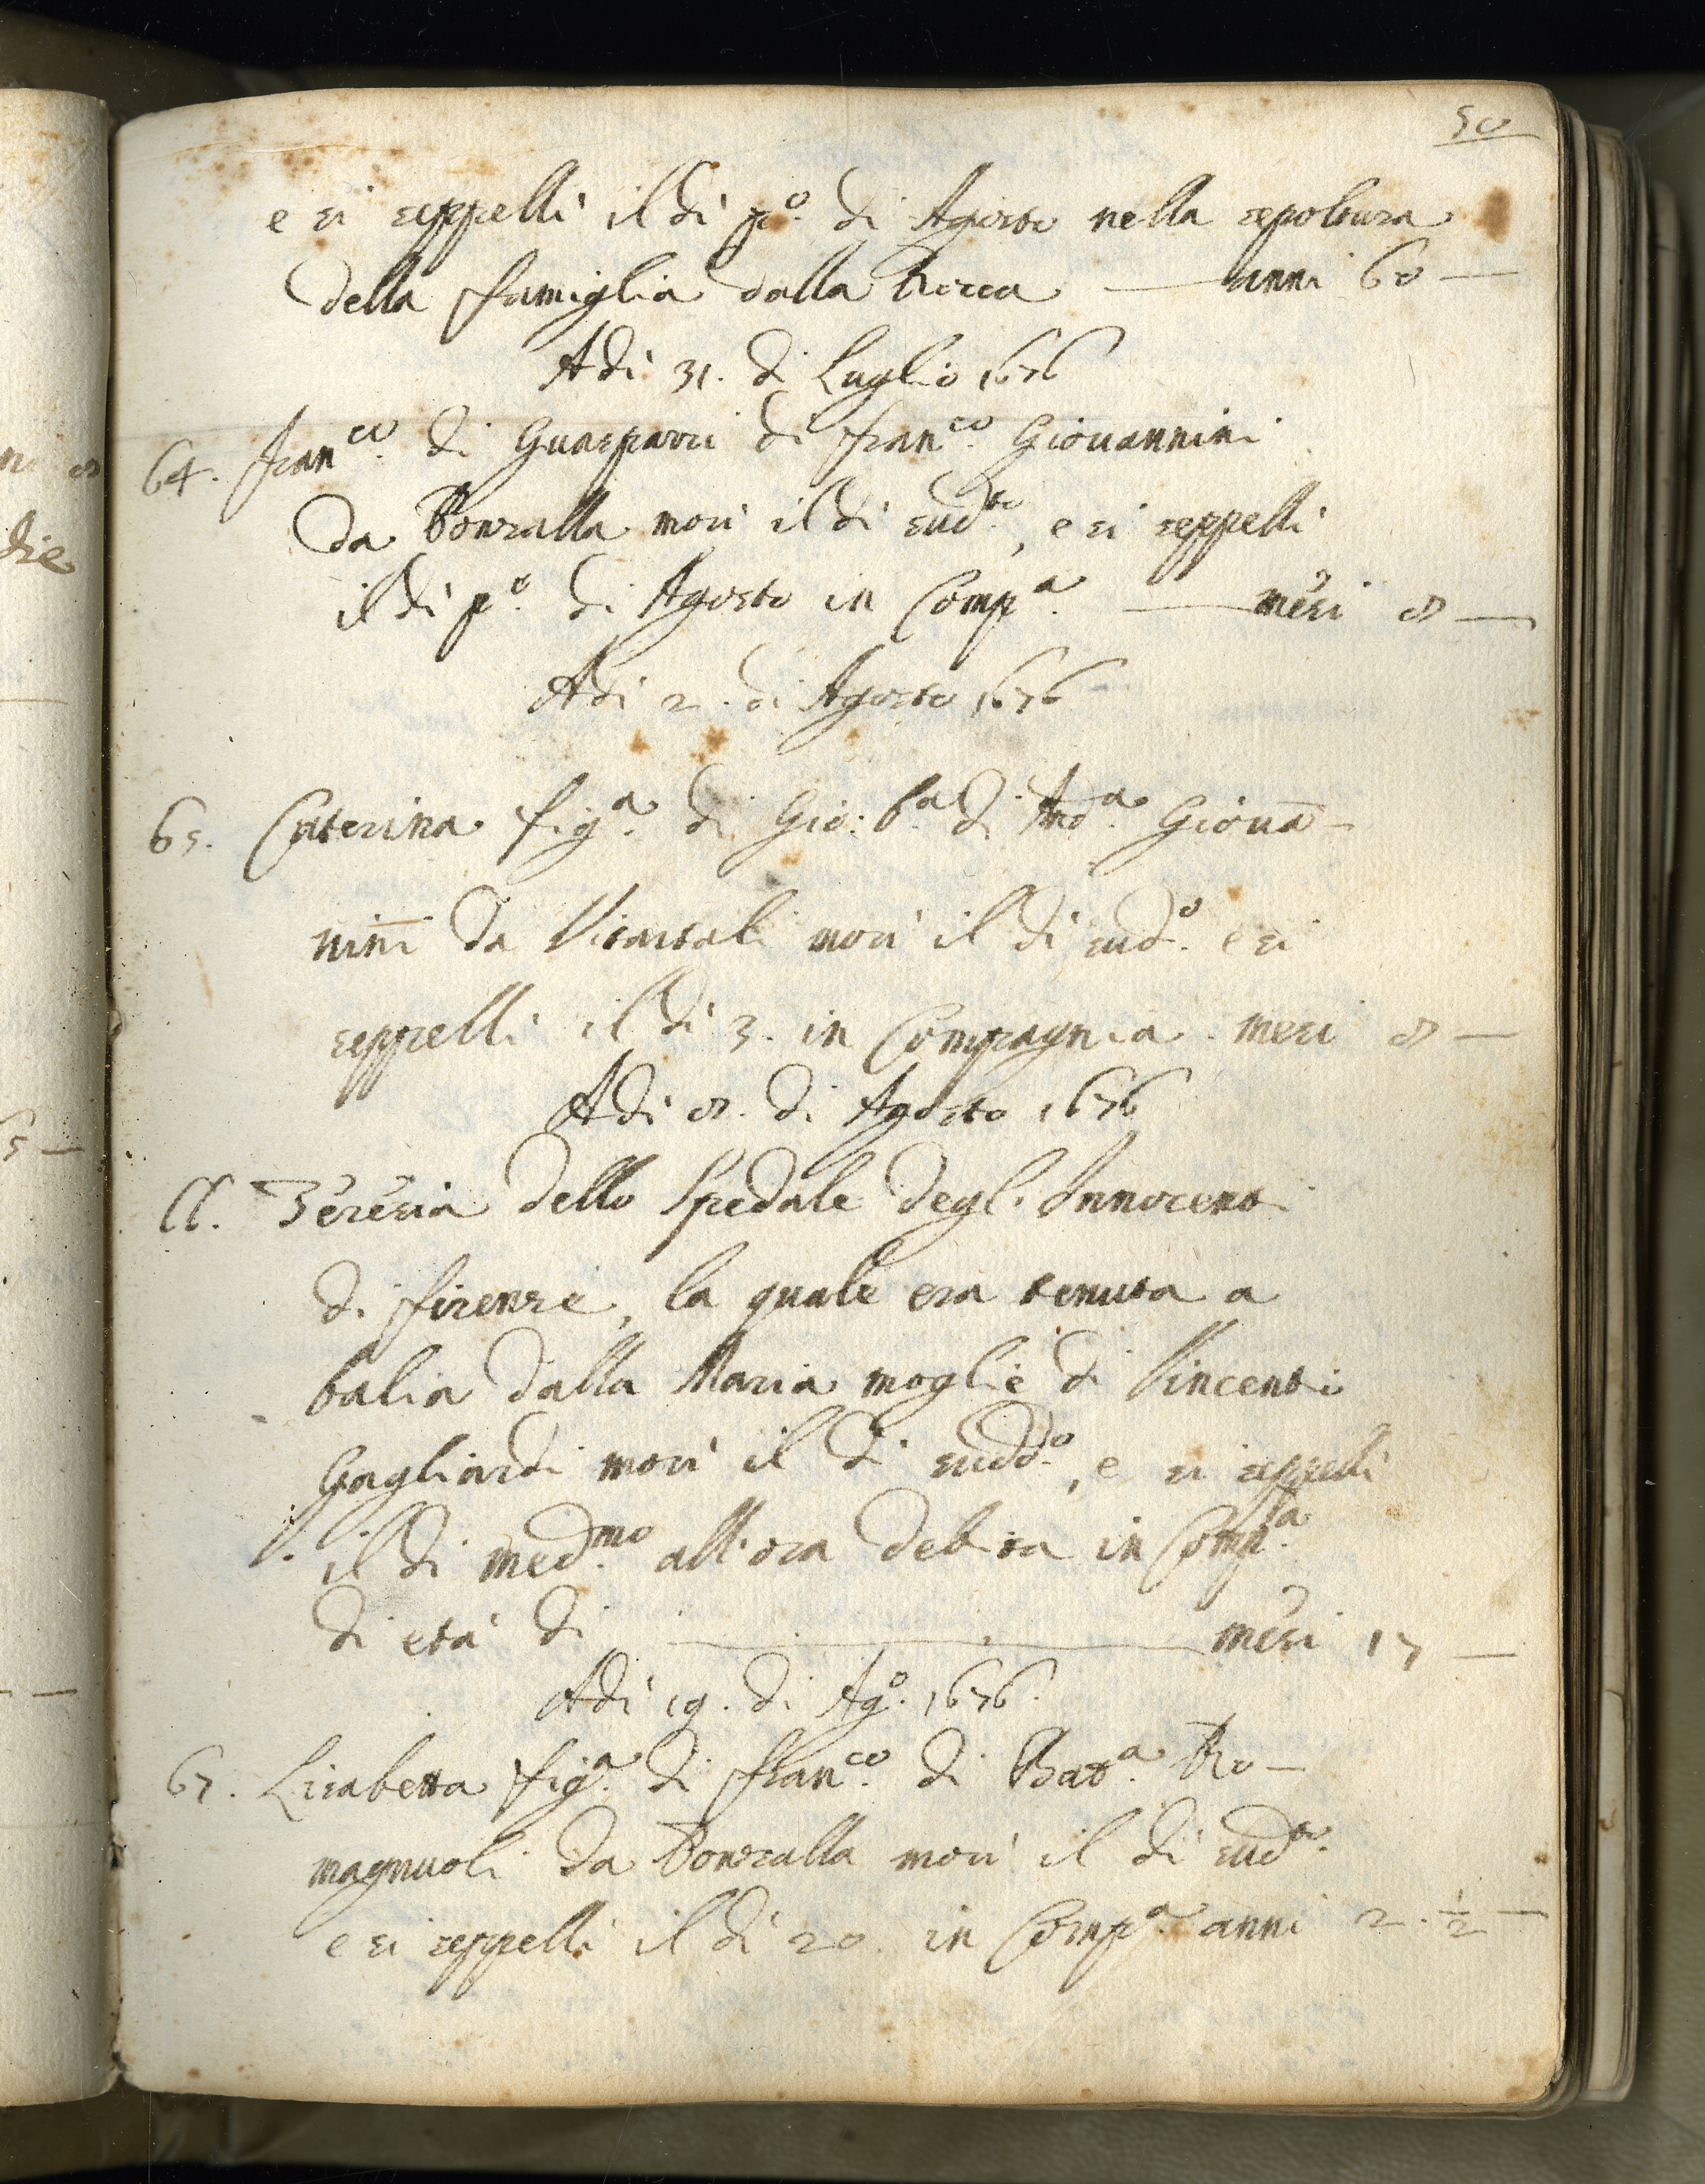 50
e si seppellì il dì p.º di Agosto nella sepoltura
della famiglia dalla Rocca — anni 60 —
Adì 31. di Luglio 1676
64. Fran.co di Guasparri di Fran.co Giovannini
da Ponzalla morì il dì sud.to, e si seppellì
il dì p.º di Agosto in Comp.a — mesi 8 —
Adì 2. di Agosto 1676
65. Caterina fig.a di Gio: b.a di And.a Giovā-
nini da morì il dì sud.o e si
seppellì il dì 3. in Compagnia. mesi 8 —
Adì 8. di Agosto 1676
66. Teresia dello Spedale degl'Innocenti
di Firenze, la quale era tenuta a
balia dalla Maria moglie di Vincentio
Gagliardi morì il dì sudd.o, e si seppellì
il dì med.mo all'ora debita in Comp.a
di età di — mesi 17 —
Adì 19. di Ag.o 1676.
67. Lisabetta fig.a di Fran.co di Bat.a Ro-
magnuoli da Ponzalla morì il dì sud.to
e si seppellì il dì 20 in Comp.a anni 2. 1/2 —